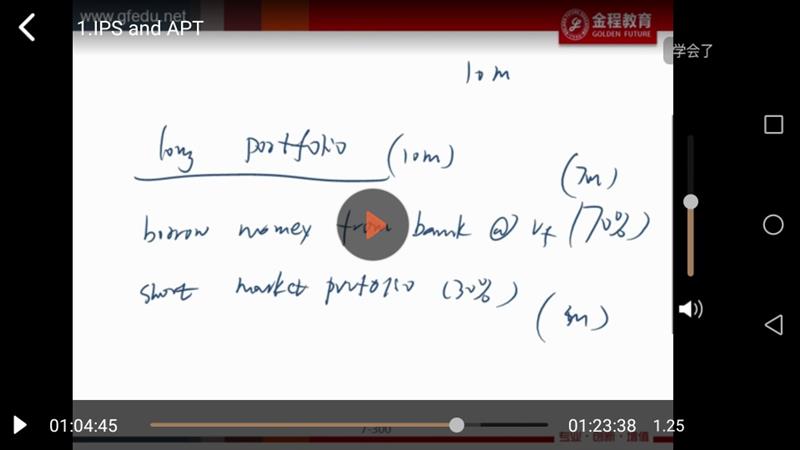 www.gfedu.net
1.IPS and APT
金程教育
GOLDEN FUTURE
学会了
10m
long portfolio (10m)
(7m)
borrow money from bank @ rf (70%)
short market portfolio (30%)
(3m)
01:04:45
7-300
01:23:38
1.25
专业·创新·增值